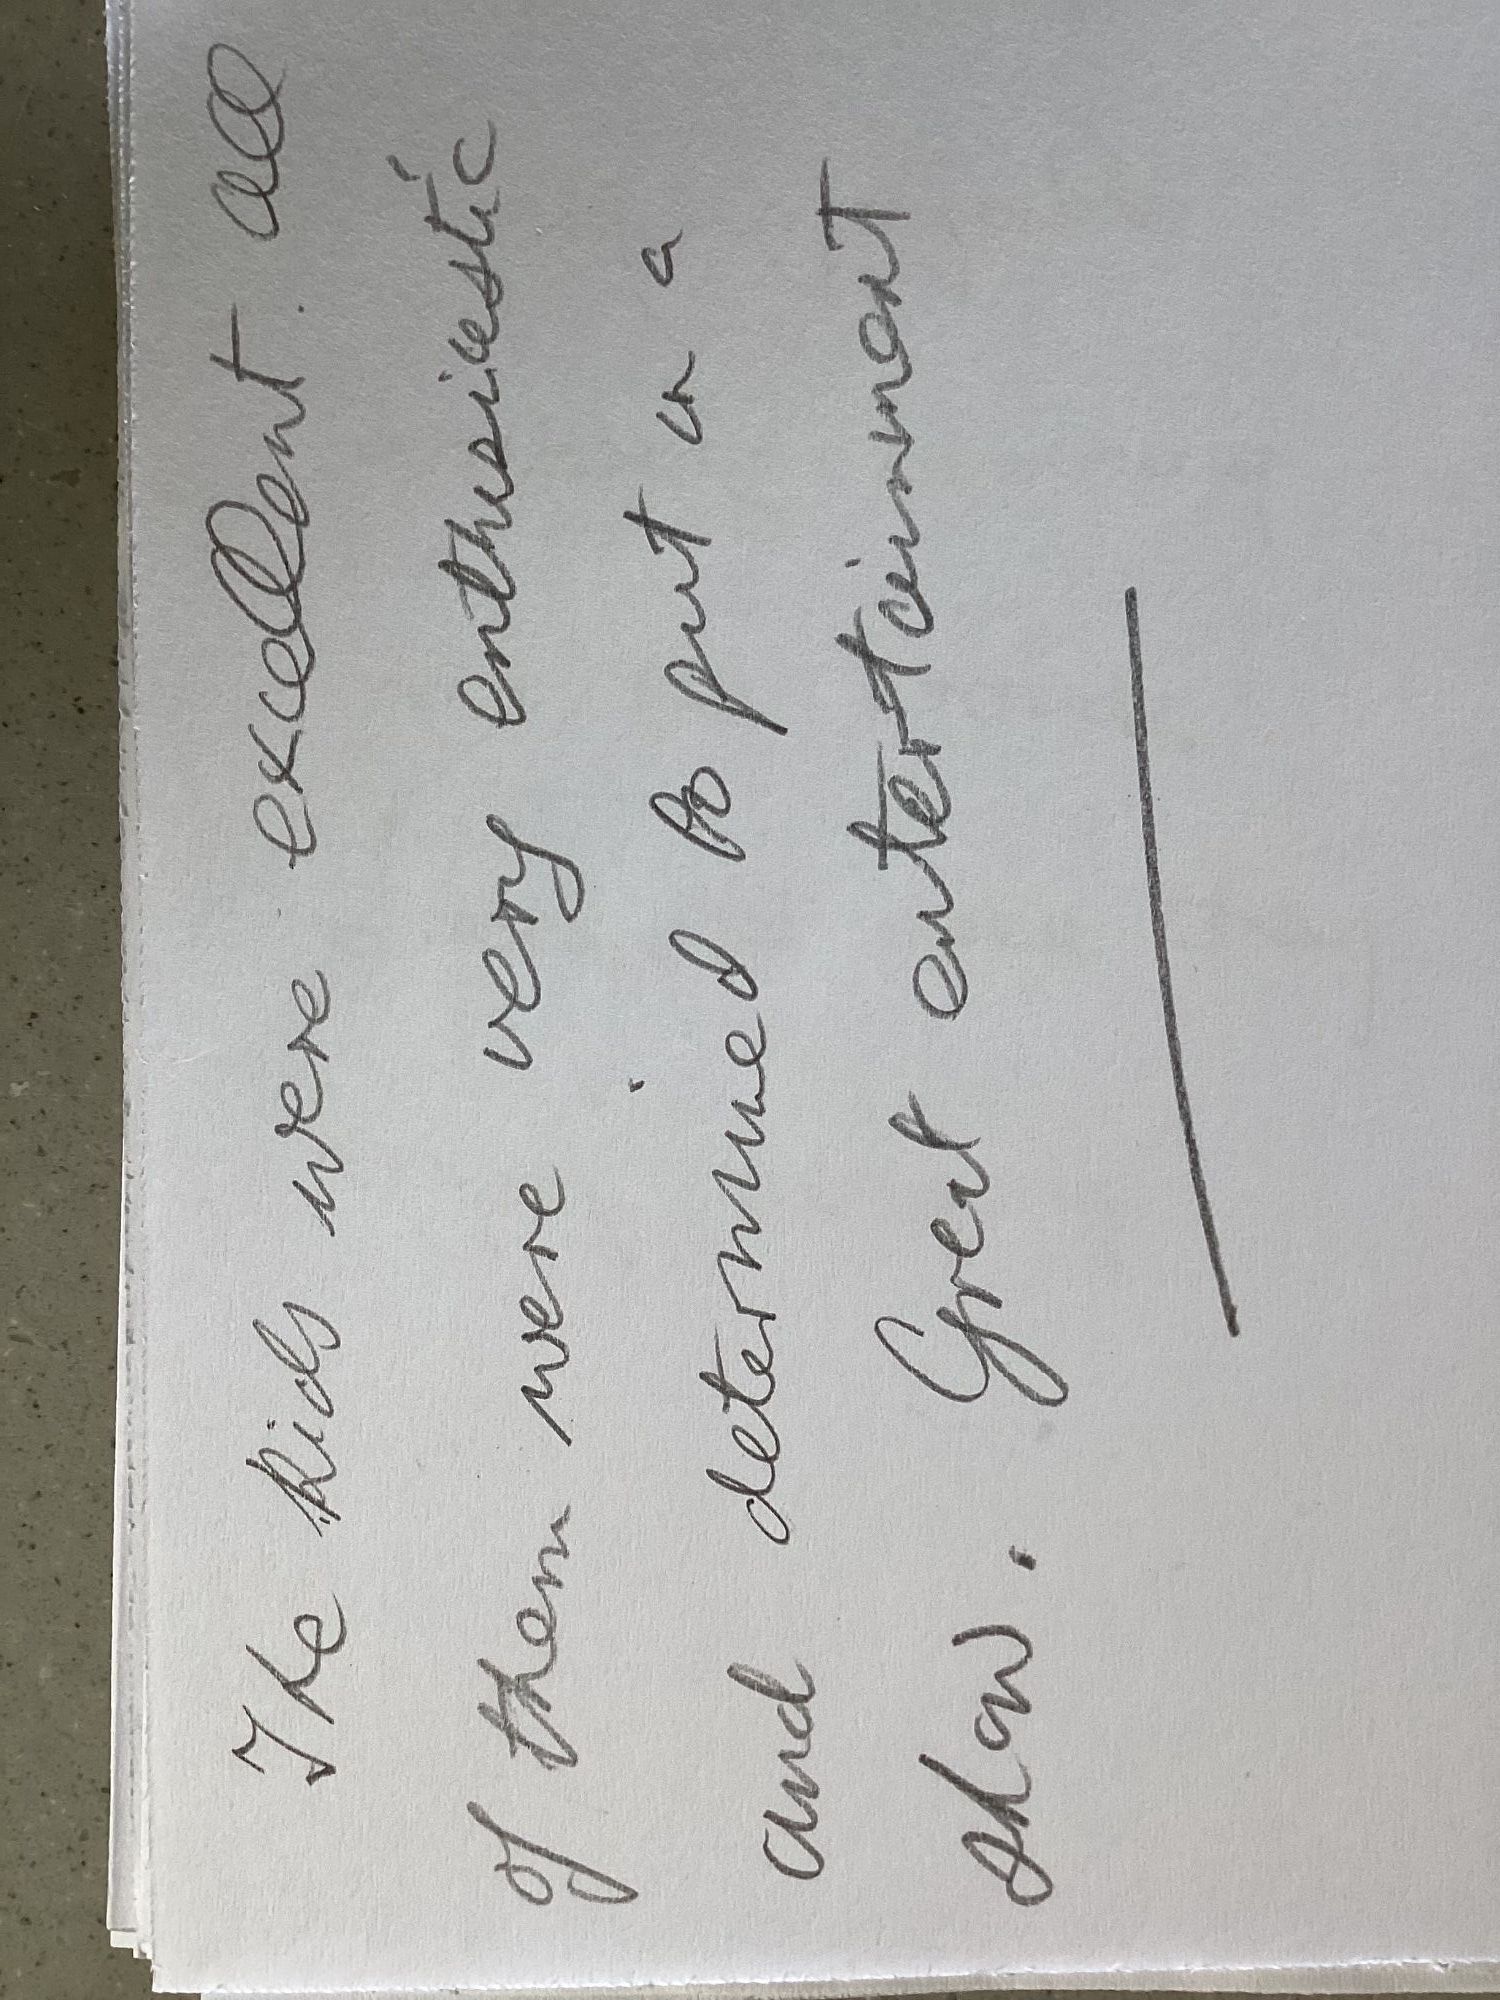 The kids were excellent. all
of them were very enthusiestic
and determined to put on a
show. Great entertainment